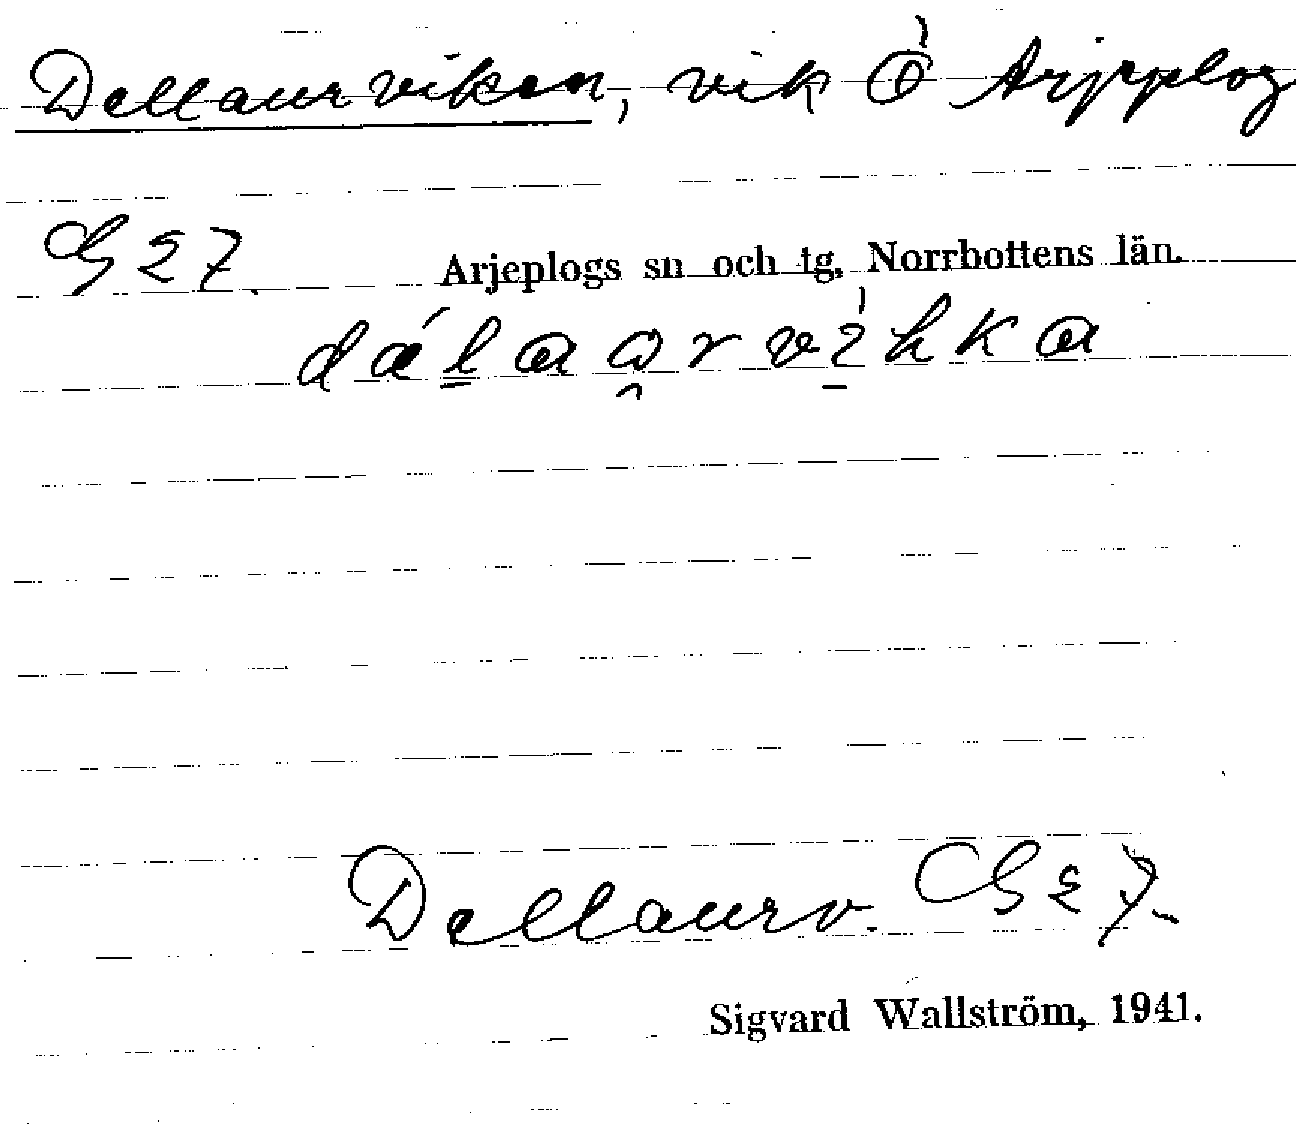 Dellaurviken, vik i Ö Arjeplog
G 27. Arjeplogs sn och tg, Norrbottens län.
Dellaurv. G 27.
Sigvard Wallström, 1941.